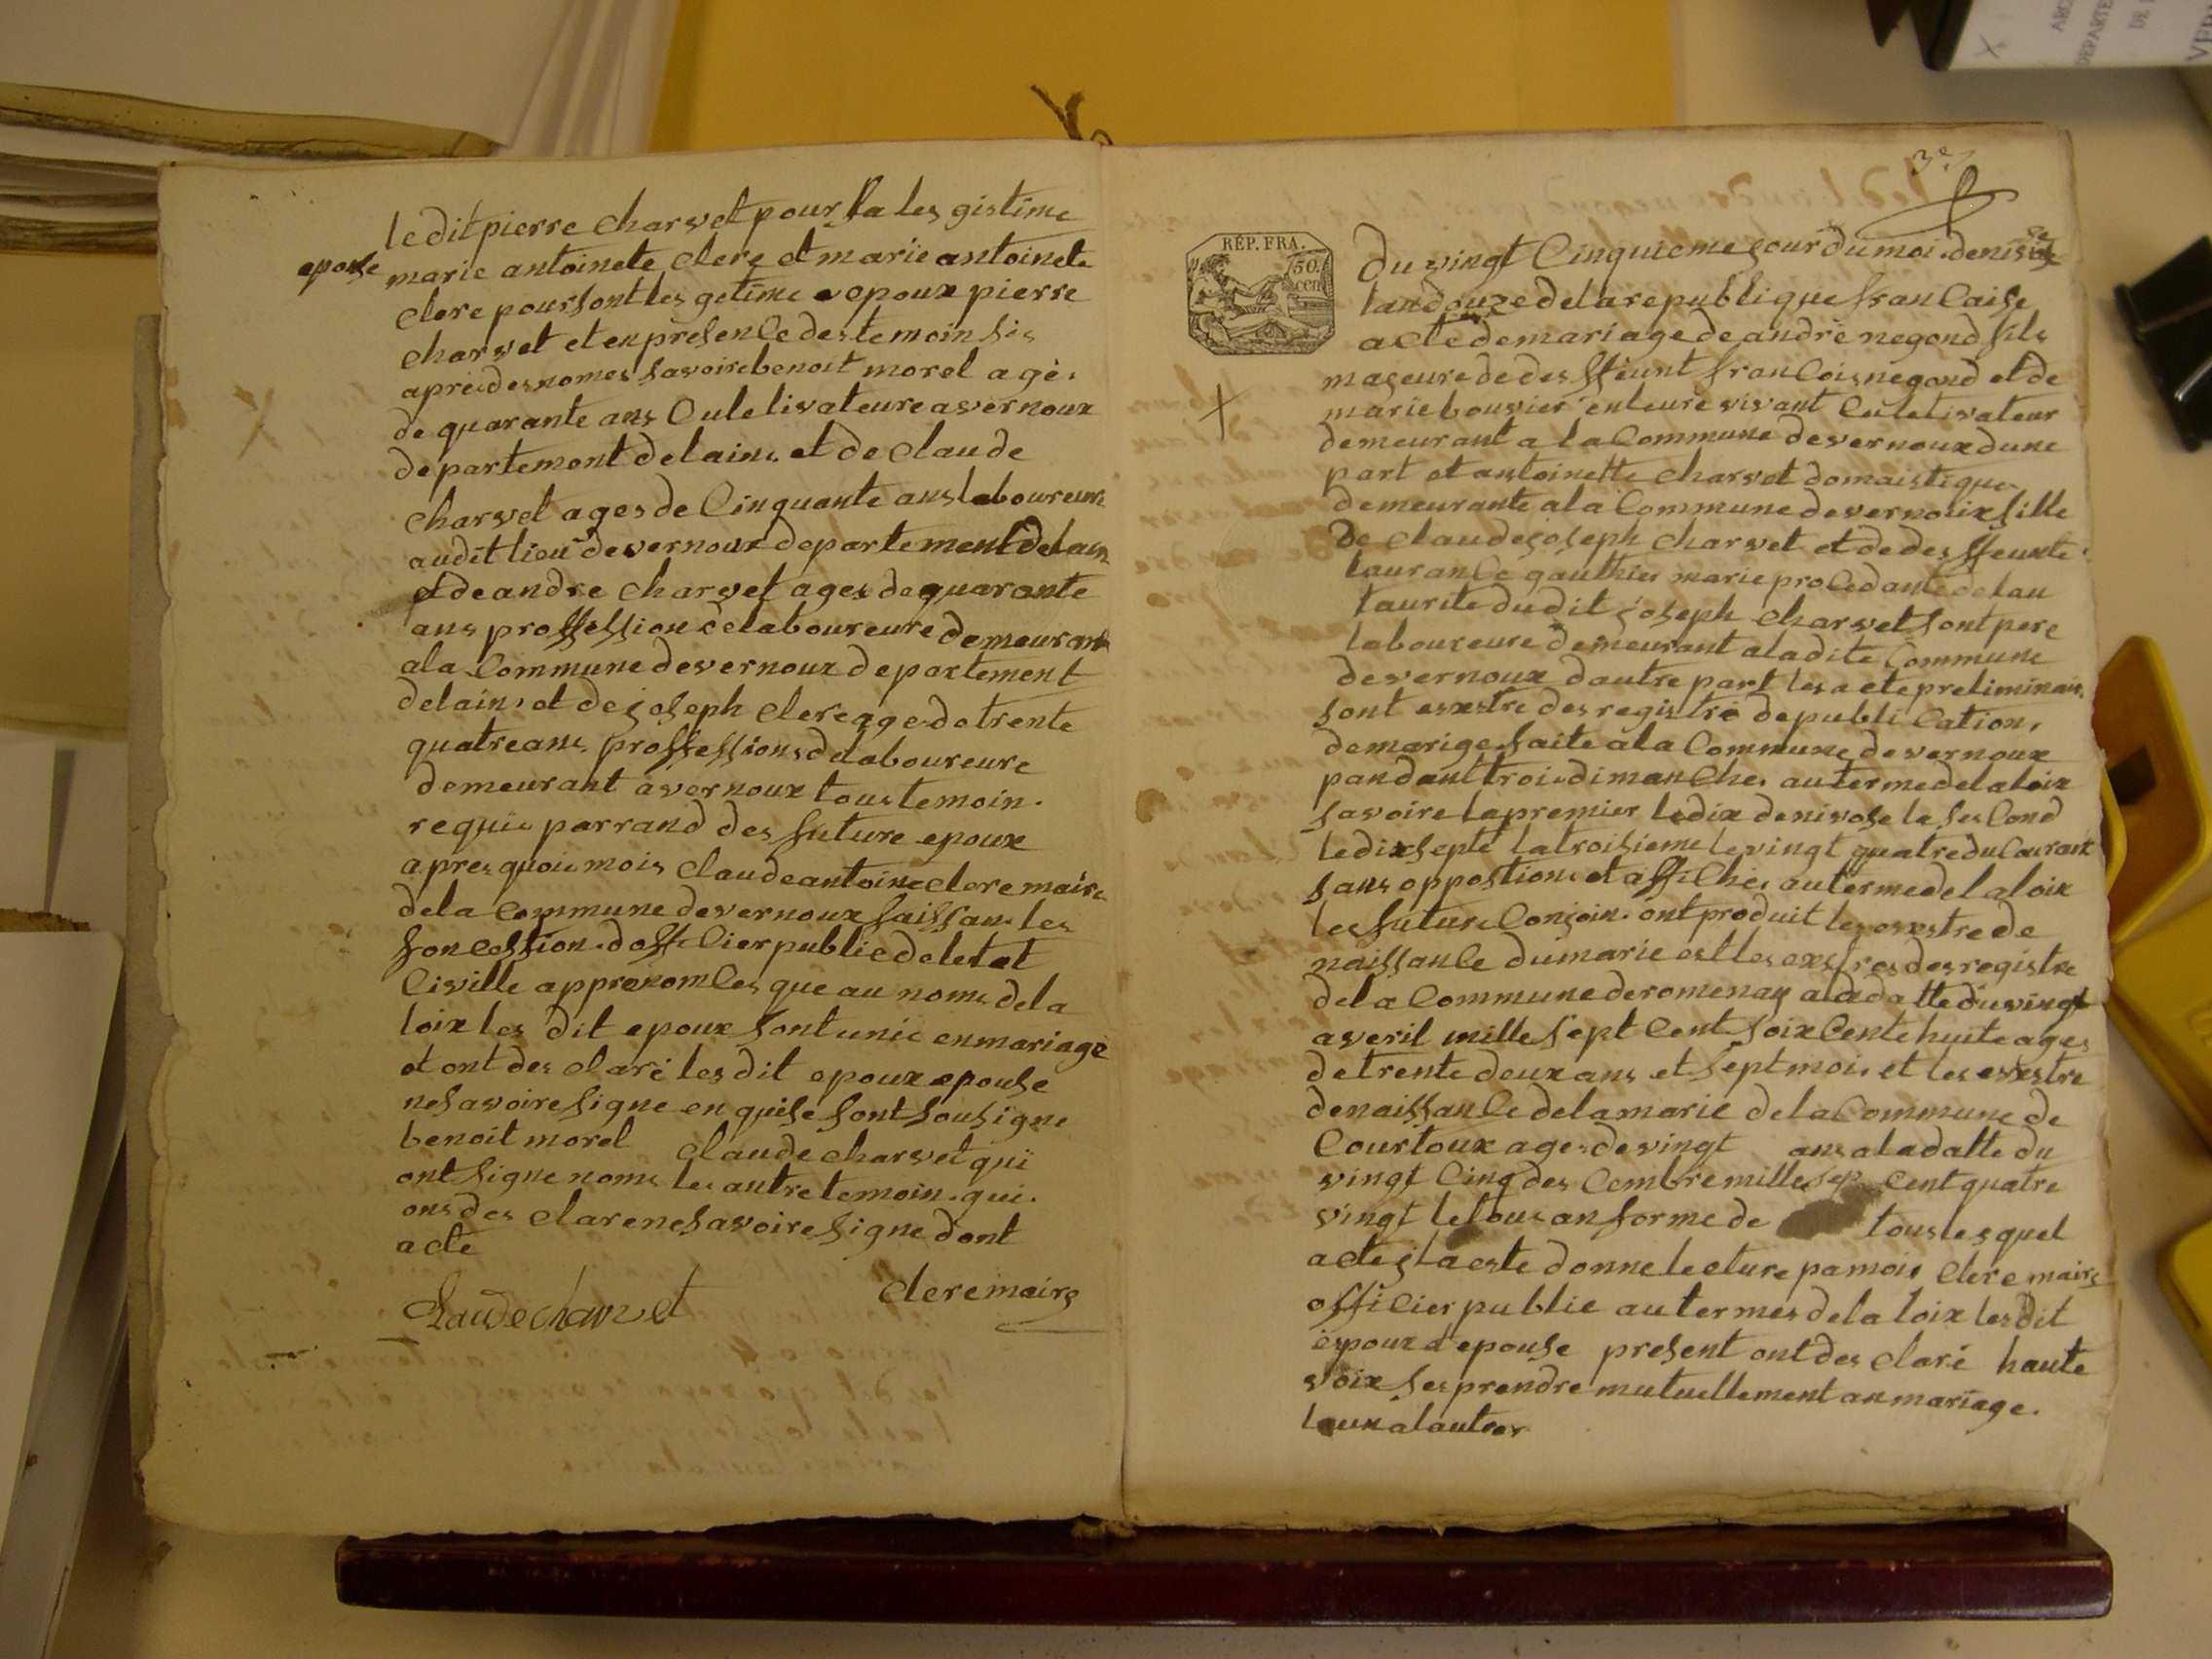 le dit pierre charvet pour sa les gistime
epouse marie antoinete clere et marie antoinete
clere pour sont les getime epoux pierre
charvet et en presence des temoin sis
apres des nomes savoire benoit morel agé
de quarante ans Culetivateure a vernoux
departement delain et de claude
charvet ages de Cinquante ans laboureure
audit lieu de vernoux departement delain
et de andre charvet ages de quarante
ans proffession de laboureure demeurant
ala Commune de vernoux departement
delain et de joseph clere age de trente
quatre ans proffessions de laboureure
demeurant a vernoux tous temoin
requis par rand des future epoux
apres quoi mois claude antoine clere maire
dela Commune de vernoux faissant les
foncestion dofficier public de letat
Civille appronomces que au noms dela
loix les dit epoux sont unie en mariage
et ont des claré les dit epoux epouse
ne savoire signe en quise sont sousigne
benoit morel claude charvet qui
ont signe noms les autre temoin qui
ons des clare ne savoire signe dont
acte
Claude charvet
clere maire
ARC
DEPARTE
DE
3e
RÉP. FRA.
50
cen
Du vingt Cinquieme jour du moi de nivose
lan douze dela republique francaise
acte de mariage de andré negond fils
majeure de des ffeunt francois negond et de
marie bouvier enleure vivant Culetivateur
demeurant a la Commune de vernoux dune
part et antoinette charvet domaistique
demeurante ala Commune de vernoux fille
De claude joseph charvet et de des ffeunte
laurance gauthier marie procedante de lau
taurite du dit joseph charvet sont pere
laboureure demeurant ala dite Commune
de vernoux dautre part les acte preliminair
sont esxstre des registre de publication
de marige faite ala Commune de vernoux
pandant troi dimanche au terme dela loix
savoire le premier le dix de nivose le second
le dix septe la troisieme le vingt quatre du Courant
sans oppostions et affiche au terme de la loix
les future Conjoin ont produit les esxstre de
naissance du marie est les exstres des registre
dela Commune de romenay a la datte du vingt
averil mille sept cent soix cente huite ages
de trente deux ans et sept moi et les esxstre
de naissance de la marie de la Commune de
Courtoux age de vingt ans ala datte du
vingt Cinq des Cembre mille sep Cent quatre
vingt le tous an forme de tous les quel
acte jla este donne lecture pa moi clere maire
officier public au termes de la loix les dit
epoux et epouse present ont des claré haute
voix ses prendre mutuellement an mariage
laux a lautres